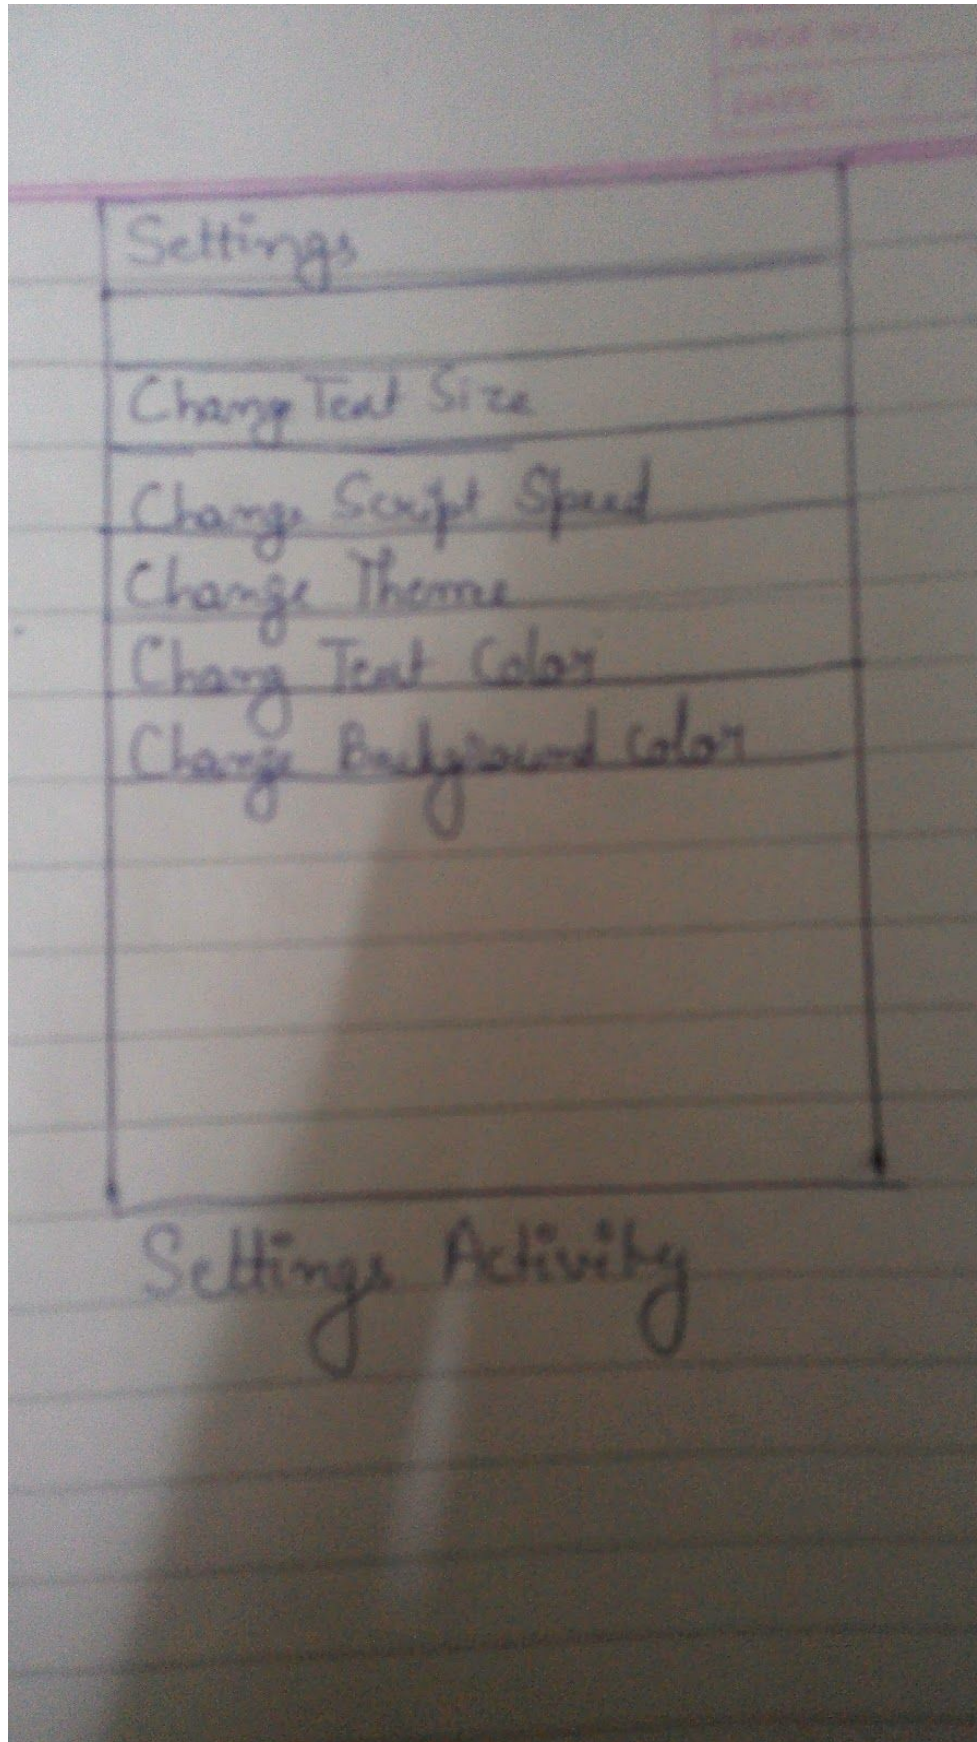 PAGE NO.:
DATE:
Settings
Chang Text Size
Change Script Speed
Change Theme
Chang Text Color
Change Background Color
Settings Activity